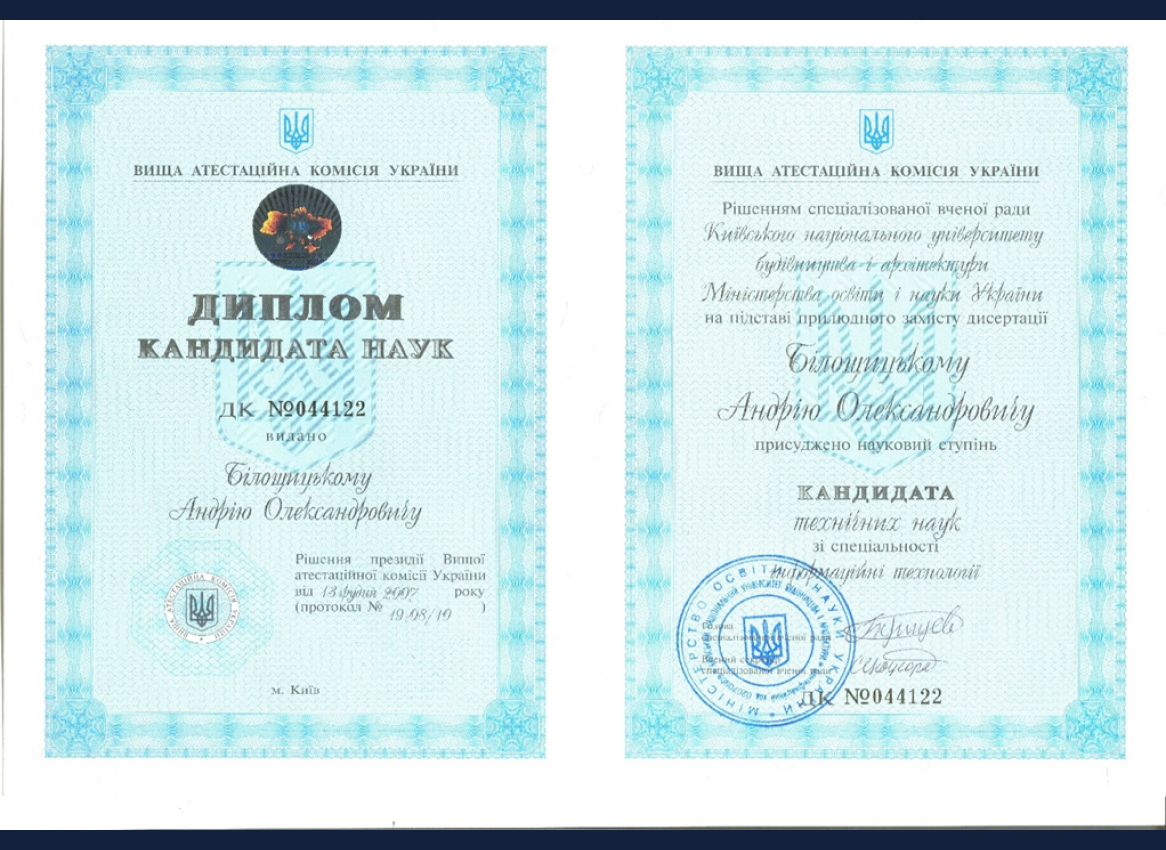 ВИЩА АТЕСТАЦІЙНА КОМІСІЯ УКРАЇНИ
ДИПЛОМ
КАНДИДАТА НАУК
ДК №044122
видано
Білощицькому
Андрію Олександровичу
Рішення президії Вищої
атестаційної комісії України
від 13 грудня 2007 року
(протокол № 19-08/10 )
ВИЩА АТЕСТАЦІЙНА КОМІСІЯ УКРАЇНИ
м. Київ
ВИЩА АТЕСТАЦІЙНА КОМІСІЯ УКРАЇНИ
Рішенням спеціалізованої вченої ради
Київського національного університету
будівництва і архітектури
Міністерства освіти і науки України
на підставі прилюдного захисту дисертації
Білощицькому
Андрію Олександровичу
присуджено науковий ступінь
КАНДИДАТА
технічних наук
зі спеціальності
інформаційні технології
Голова
спеціалізованої вченої ради
Вчений секретар
спеціалізованої вченої ради
МІНІСТЕРСТВО ОСВІТИ І НАУКИ УКРАЇНИ
ДК №044122